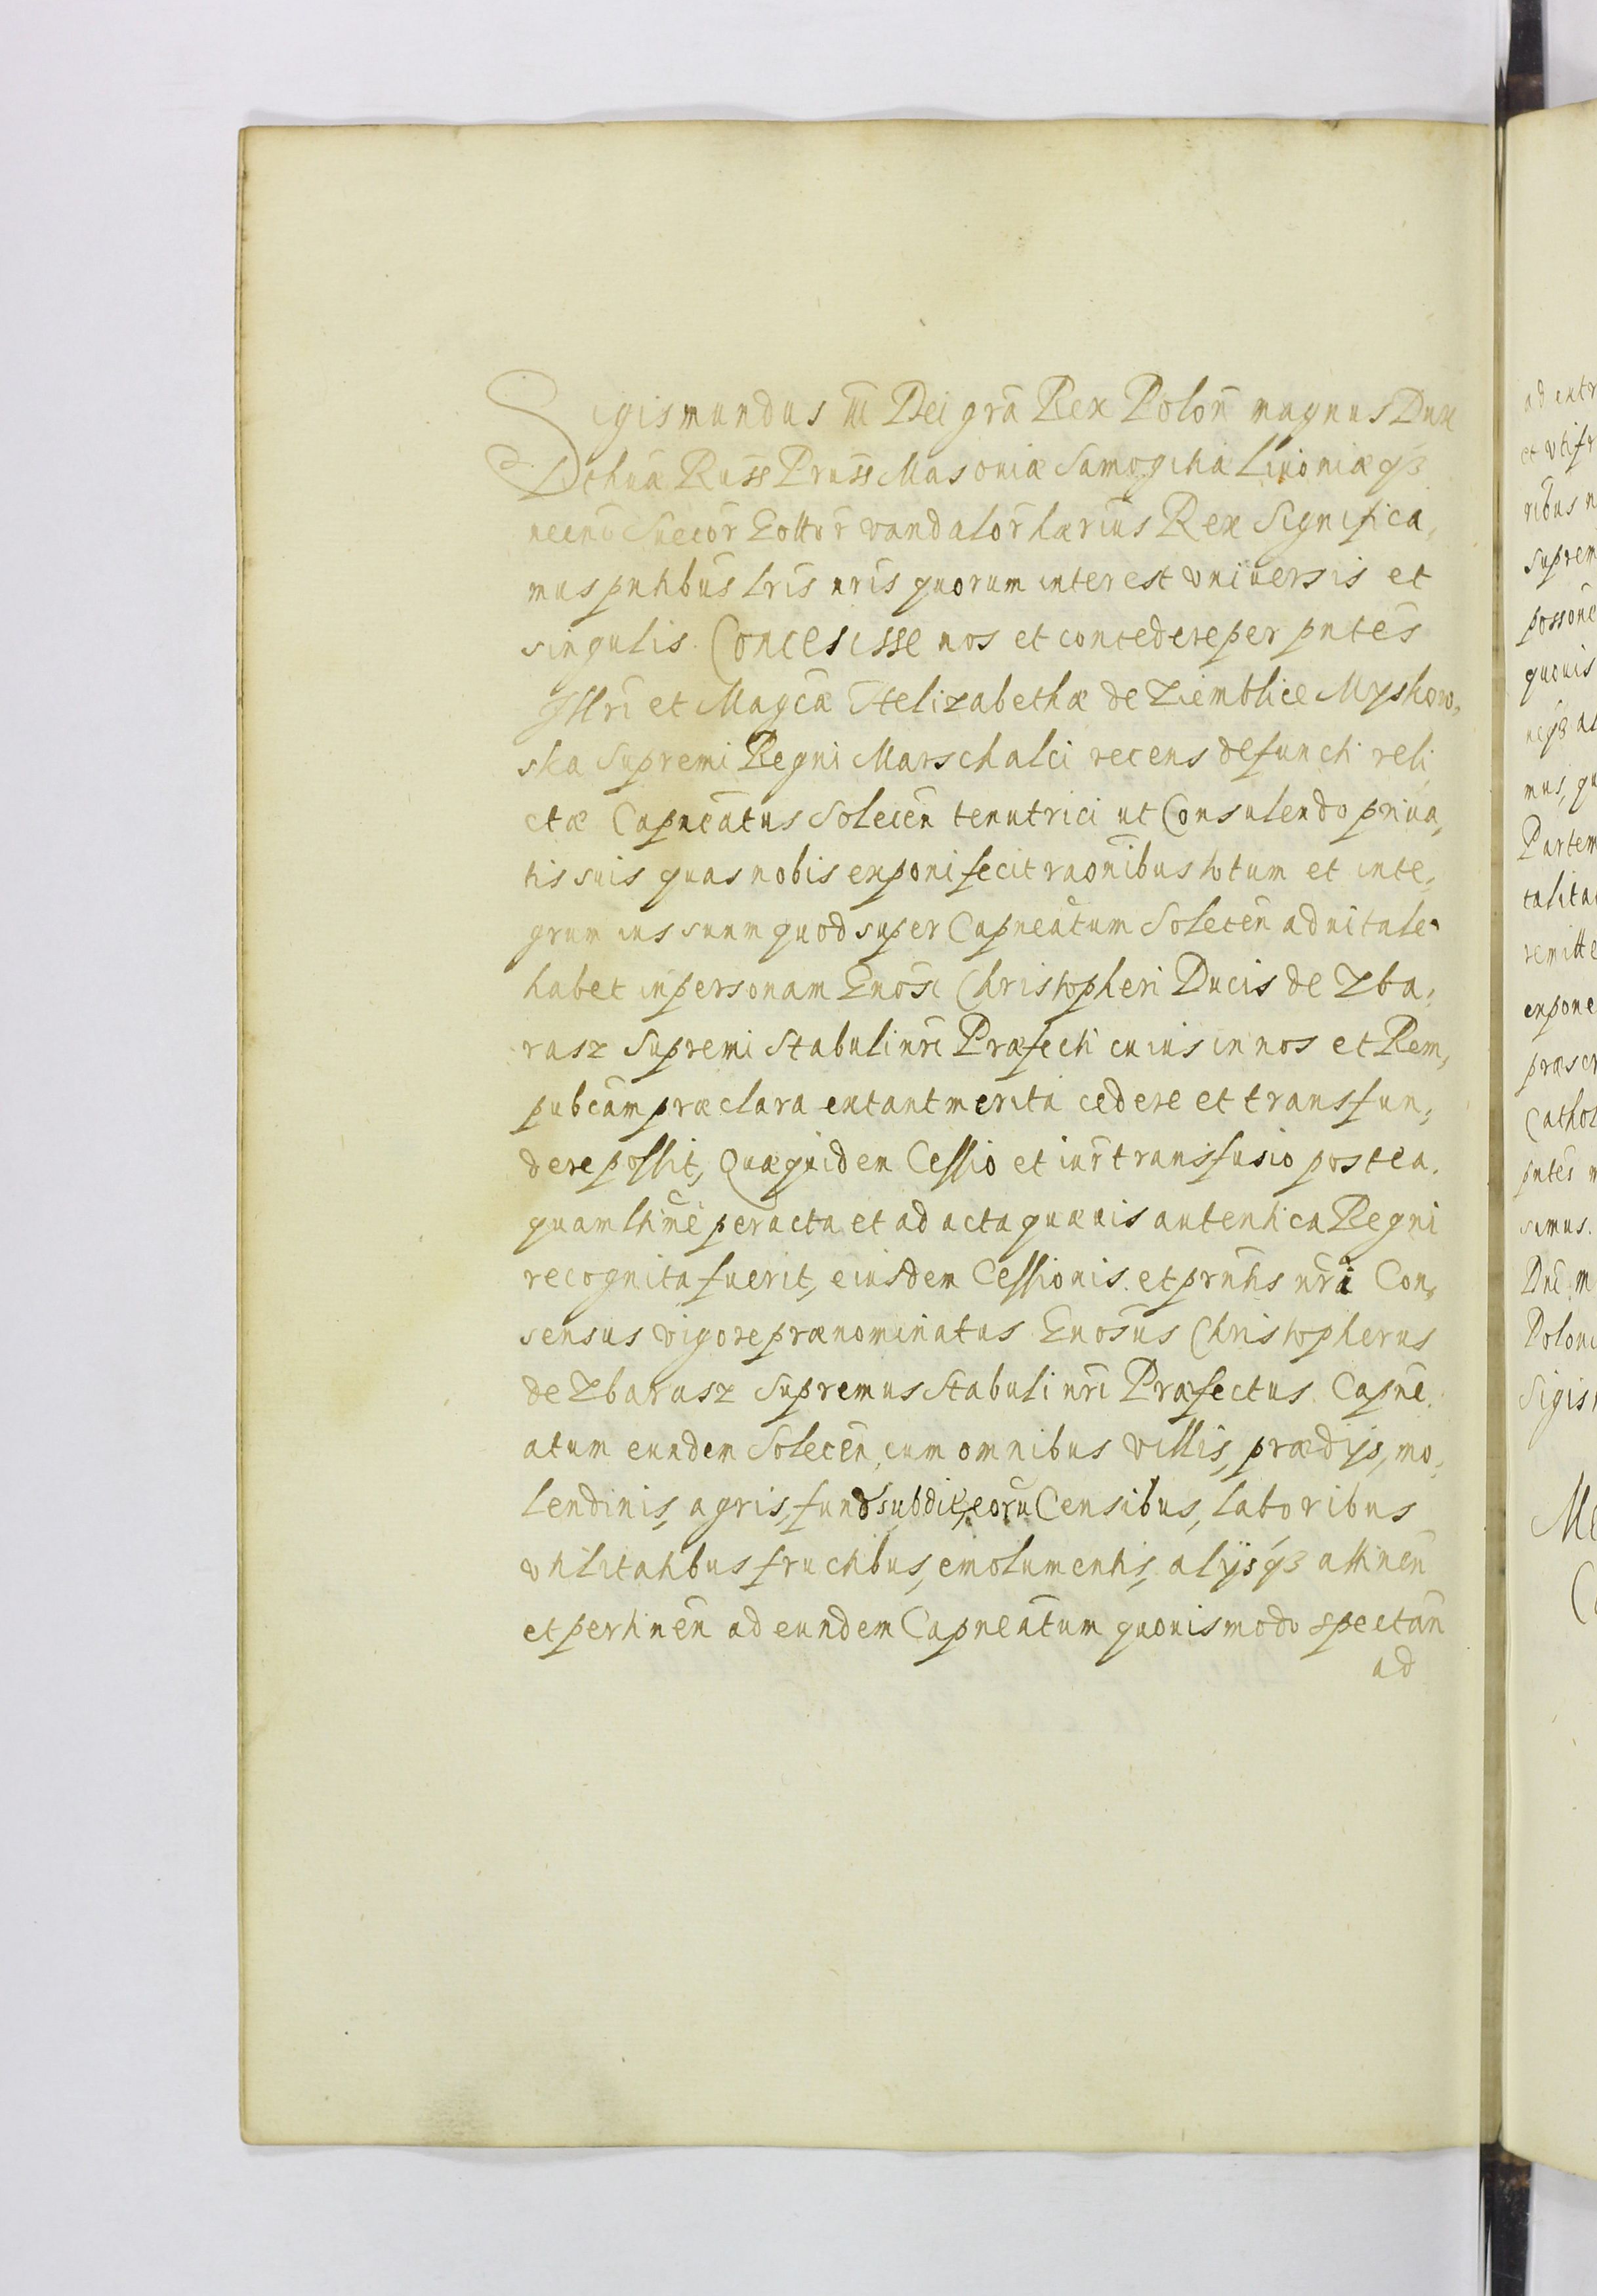 Sigismundus III Dei grã Rex Polon̄ magnus Dux
Lithuã Russ Pruss Masoviæ Samogitiã Livoniæq3
necnō Suecor̄ Gottor̄ vandalor̄ hærius Rex Significa,
mus pntibus lris nris quorum interest vniuersis et
singulis. Concessisse nos et concedere per pntēs
Illri et Magcæ Helizabethæ de Ziemblice Myskow,
ska Supremi Regni Marschalci recens defuncti reli
ctæ Capneātus Solecēn tenutrici ut Consulendo priua,
tis suis quas nobis exponi fecit raōnibus totum et inte,
grum ius suum quod super Capneātum Solecēn aduitale
habet in personam Gnosi Christopheri Ducis de Zba,
rasz Supremi Stabuli nri Præfecti cuius in nos et Rem,
pubcam præclara extant merita cedere et transfun,
dere possit, Quæquidem Cessio et iur̄ transfusio postea,
quam lthmē peracta et ad acta quævis autentica Regni
recognita fuerit, eiusdem Cessionis et prntis nri Con,
sensus vigore prænominatus Gnosus Christopherus
de Zbarasz Supremus Stabuli nri Præfectus Capne,
atum eundem Solecēn, cum omnibus villis, prædijs, mo,
lendinis, agris, fund subdit, eorū Censibus, laboribus
vtilitatibus fructibus, emolumentis, alijsq3 attinēn
et pertinēn ad eundem Capneātum quouismodo spectān
ad
ad extr
et vtifr
ribus n
suprem
possone
quouis
neq3 al
mus, qu
Partem
talitat
remitte
expone
præscr
Cathol
pntēs m
simus.
Dnī m
Poloni
Sigism